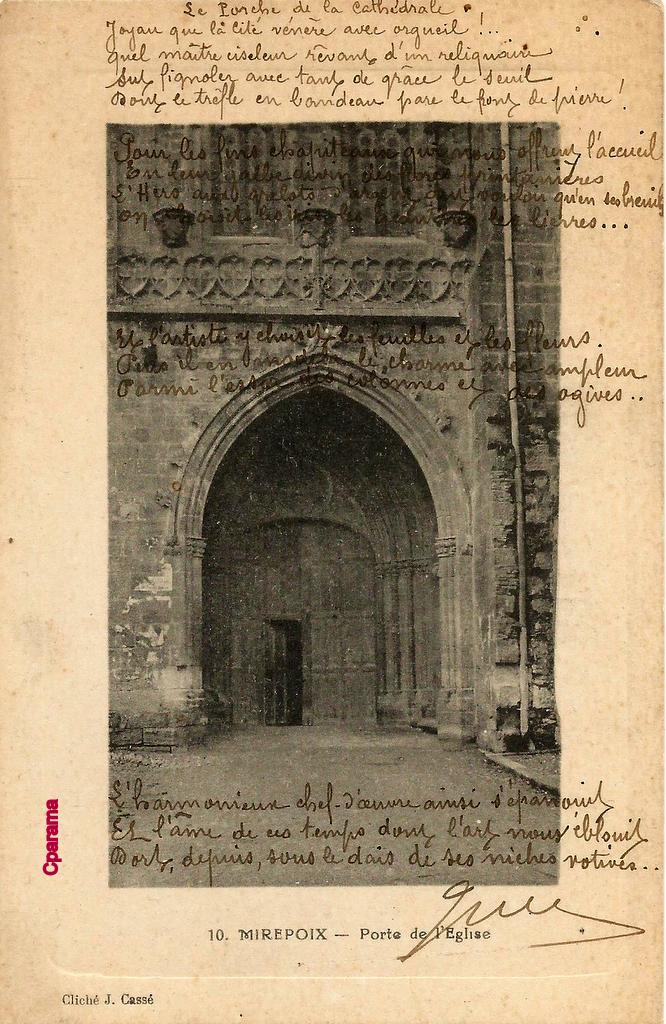 Le Porche de la Cathédrale.
Joyau que la Cité vénère avec orgueil !...
Quel maître ciseleur rêvant d'un reliquaire
Sut fignoler avec tant de grâce le seuil
Dont le trèfle en bandeau pare le front de pierre !
Pour les fins chapiteaux qui nous offrent l'accueil
En leur galbe divin des flores printanières
L'Hers aux galets d'argent voulou qu'en ses breuils
On choisit les les lierres...
Et l'artiste y choisit les feuilles et les fleurs.
Puis il en maria le charme avec ampleur
Parmi l'essor des colonnes et des ogives..
L'harmonieux chef-d'œuvre ainsi s'épanouit
Et l'âme de ces temps dont l'art nous éblouit
Dort, depuis, sous le dais de ses niches votives..
10. MIREPOIX — Porte de l'Eglise
Cliché J. Cassé
Cparama